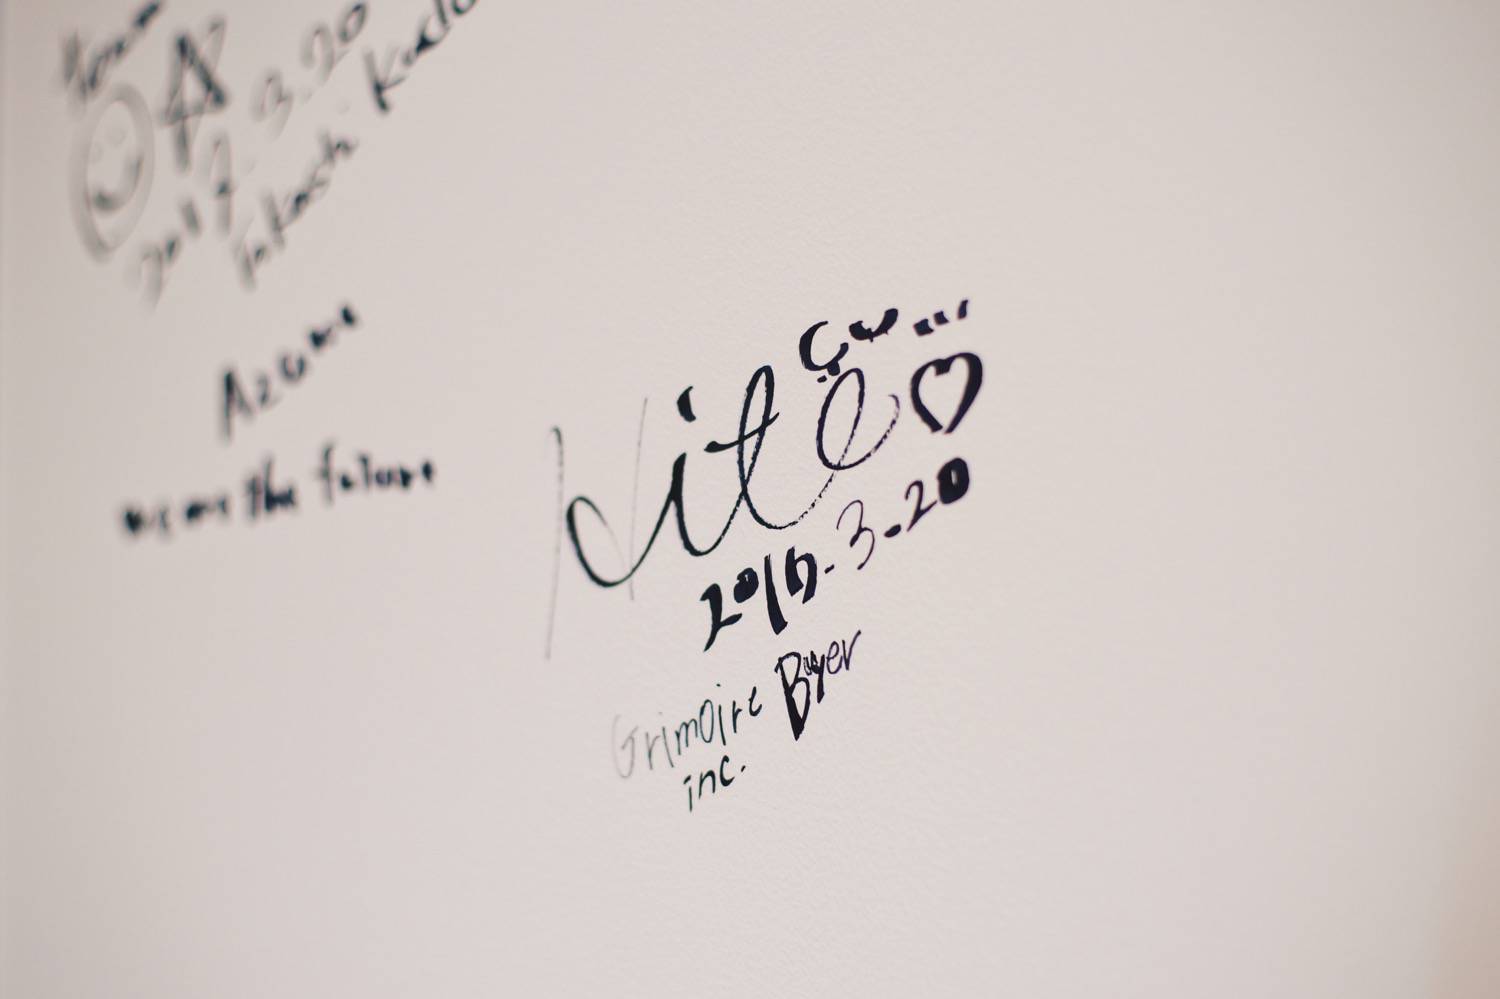 2017.3.20
Takashi Kudo
Azuma
we are the future
Kite
2017.3.20
Grimoire Buyer
inc.